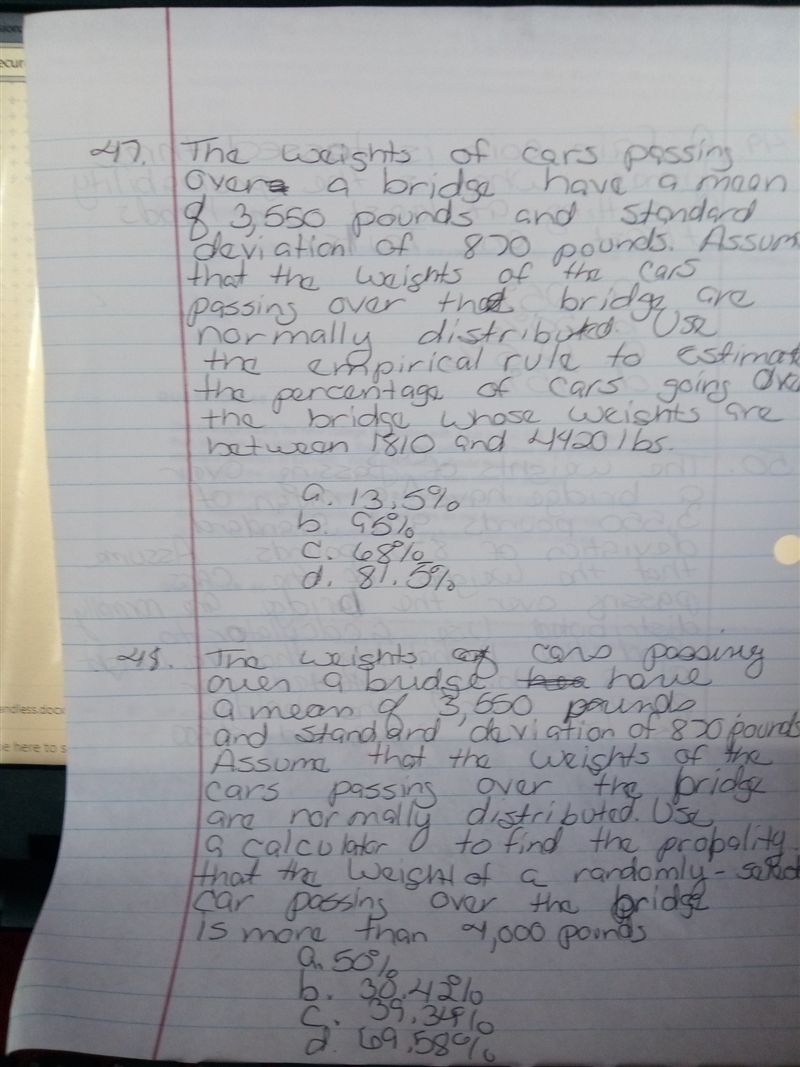 47. The weights of cars passing
over a bridge have a mean
of 3,550 pounds and standard
deviation of 870 pounds. Assum
that the weights of the cars
passing over the bridge are
normally distributed. Use
the empirical rule to estimat
the percentage of cars going ove
the bridge whose weights are
between 1810 and 4420 lbs.
a. 13.5%
b. 95%
c. 68%
d. 81.5%
48. The weights of cars passing
over a bridge have
a mean of 3,550 pounds
and standard deviation of 870 pounds
Assume that the weights of the
cars passing over the bridge
are normally distributed. Use
a calculator to find the propality
that the weight of a randomly-select
car passing over the bridge
is more than 4,000 pounds
a. 50%
b. 30.42%
c. 39.34%
d. 69.58%
ecur
ndless.door
e here to s